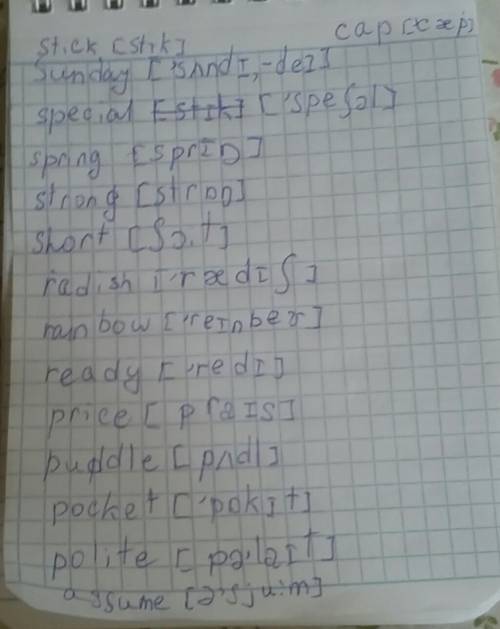 cap [кæp]
stick [stık]
sunday ['sʌndI,-deI]
special [stık] ['speʃəl]
spring [sprIŋ]
strong [strɒŋ]
short [ʃɔ:t]
radish ['rædIʃ]
rainbow ['reınber]
ready ['redI]
price [praIs]
puddle [pʌdl]
pocket ['pɒkIt]
polite [pə'laIt]
assume [ə'sju:m]